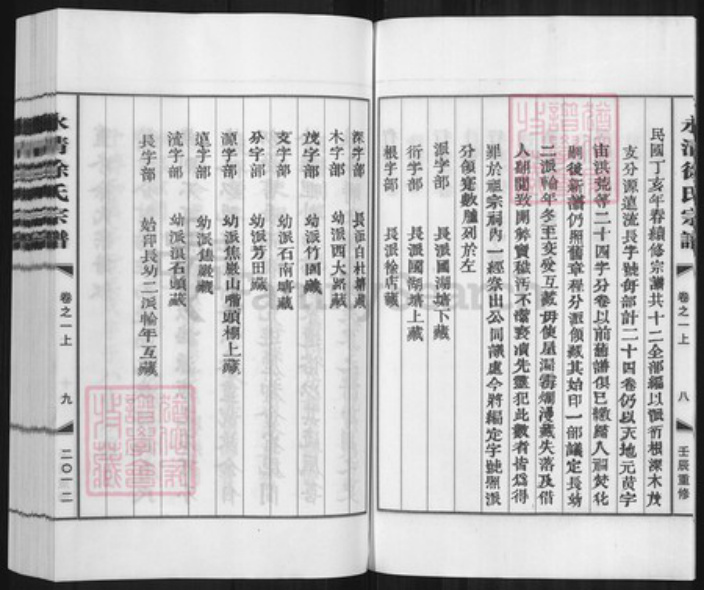 永清徐氏宗譜
卷之一上
八
壬辰重修
民國丁亥年春續修宗譜共十二全部編以派衍根深木茂
支分源遠流長字號每部計二十四卷仍以天地元黃宇
宙洪荒等二十四字分卷以前舊譜俱已繳歸入祠焚化
嗣後新譜仍照舊章程分派領藏其始印一部議定長幼
二派輪年冬至交受互藏毋使屋漏霉爛漫藏失落及借
人翻閱致開弊竇穢污不潔褻瀆先靈犯此數者皆為得
罪於祖宗祠內一經察出公同議處今將編定字號照派
分領定數臚列於左
派字部 長派國湖塘下藏
衍字部 長派國湖塘上藏
根字部 長派徐店藏
深字部 長派白杜塘藏
木字部 幼派西大路藏
茂字部 幼派竹園藏
支字部 幼派石南塘藏
分字部 幼派芳田藏
源字部 幼派焦巖山嘴頭樓上藏
遠字部 幼派焦巖藏
流字部 幼派浪石頭藏
長字部 始印長幼二派輪年互藏
永清徐氏宗譜
卷之一上
九
二〇一二